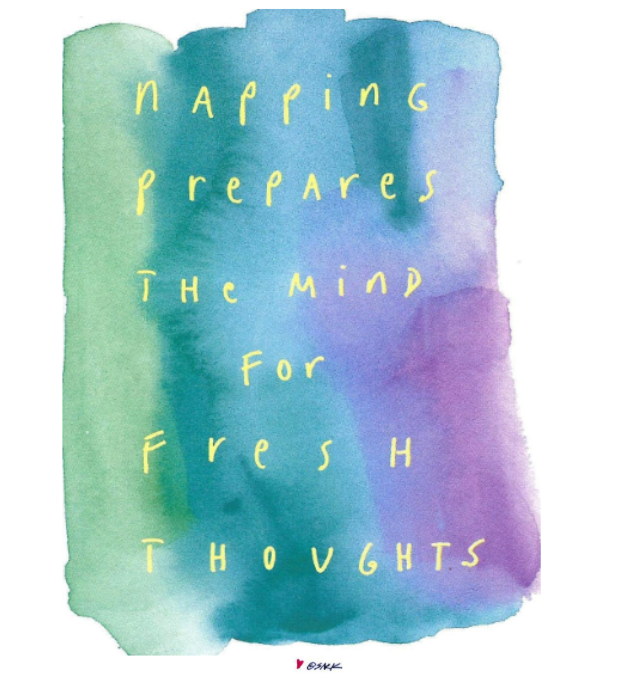 nAPPinG
PrePAres
THe MinD
For
FresH
THOUGHTS
@SARK